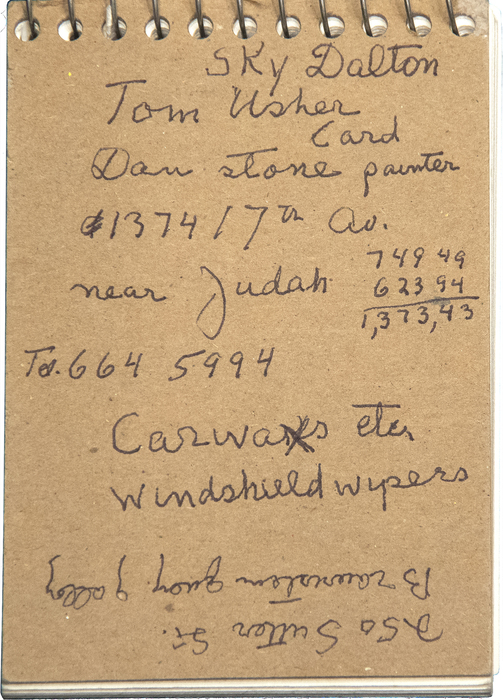 Sky Dalton
Tom Usher
Card
Dan Stone painter
1374 17th Av.
near Judah
749 49
623 94
1,373,43
Tel. 664 5994
Carwaxs etc
Windshield wypers
250 Sutter St.
Braunstein